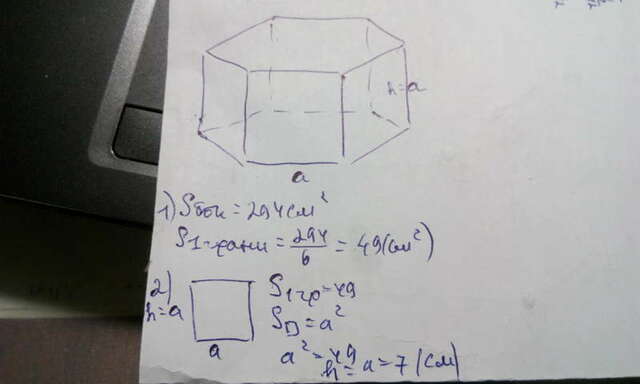 h=a
a
1) Sбок = 294 см²
S1-грани = 294/6 = 49 (см²)
2)
h=a
a
S1гр = 49
S□ = a²
a² = 49
h = a = 7 (см)